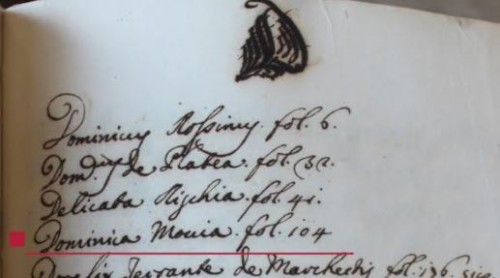 Dominicus Rossinus. fol. 6.
Dom. de Platea. fol. 32.
Delicata Rischia. fol. 41.
Dominica Mouia. fol. 104
Ferrante de Marchedis fol. 136.